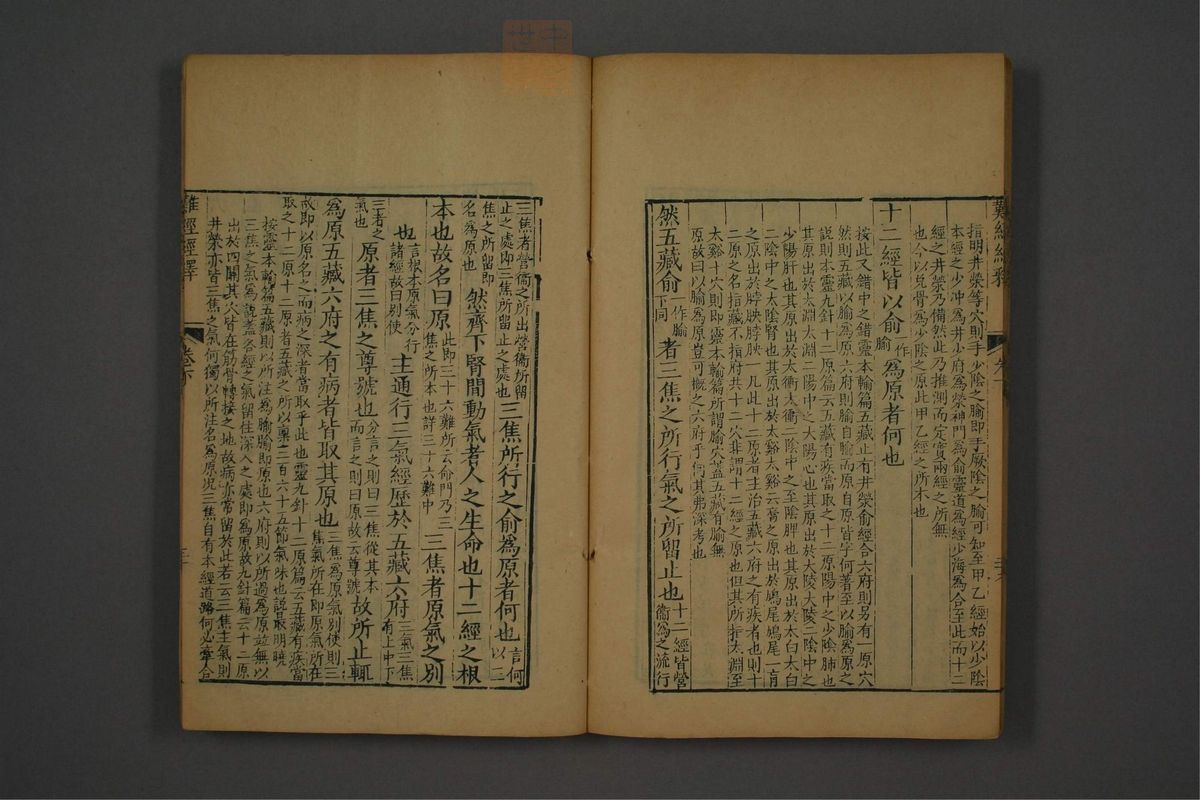 難經經釋
指明井滎等穴則手少陰之腧即手厥陰之腧可知至甲乙經始以少陰
本經之少冲為井少府為滎神門為俞靈道為經少海為合至此而十二
經之井滎乃備然此乃推測而定實兩經之所無
也今以兌骨為少陰之原此甲乙經之所本也
十二經皆以俞一作腧為原者何也
按此又錯中之錯靈本輸篇五藏止有井滎俞經合六府則另有一原穴
然則五藏以腧為原六府則腧自腧而原自原皆字何著至以腧為原之
說則本靈九針十二原篇云五藏有疾當取之十二原陽中之少陰肺也
其原出於太淵二陽中之大陽心也其原出於大陵大陵二陰中之
少陽肝也其原出於太衝太衝二陰中之至陰脾也其原出於太白太白
二陰中之太陰腎也其原出於太谿太谿二云膏之原出於鳩尾鳩尾一肓
之原出於脖胦脖胦一凡此十二原者主治五藏六府之有疾者也則十
二原之名指藏不指府共十二穴非謂十二經之原也但其所指太淵至
太谿十穴則即靈本輸篇所謂腧穴蓋五藏有腧無
原故曰以腧為原豈可概之六府乎何其弗深考也
然五藏俞一作腧下同者三焦之所行氣之所留止也十二經皆營衞為之流行
三焦者營衞之所出營衞所留
止之處即三焦所留止之處也三焦所行之俞為原者何也言何以三
焦之所留即
名為原也然齊下腎間動氣者人之生命也十二經之根
本也故名曰原此即三十六難所云命門乃三焦之所本也詳三十六難中三焦者原氣之別
也言根本原氣分行諸經故曰別使主通行三氣經歷於五藏六府三氣三焦有上中下
三者之氣也原者三焦之尊號也分言之則曰三焦從其本而言之則曰原故云尊號故所止輒
為原五藏六府之有病者皆取其原也三焦為原氣別使則三焦氣所在即原氣所在
故即以原名之而病之深者當取乎此也靈九針十二原篇云五藏有疾當
取之十二原十二原者五藏之所以稟三百六十五節氣味也說最明曉
按靈本輸篇五藏則以所注為腧腧即原也六府則以所過為原並無以
三焦之氣為說蓋各經之氣留住深入之處即為原故九針篇云十二原
出於四關其穴皆在筋骨轉接之地故病亦常留於此若云三焦主氣則
井滎亦皆三焦之氣何獨以所注名為原況三焦自有本經道路何必牽合
難經經釋
卷下